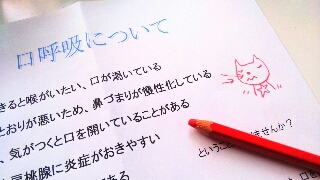 口呼吸について
きると喉がいたい、口が渇いている
とおりが悪いため、鼻づまりが慢性化している
、気がつくと口を開いていることがある
扁桃腺に炎症がおきやすい
ということ
ませんか？
がある